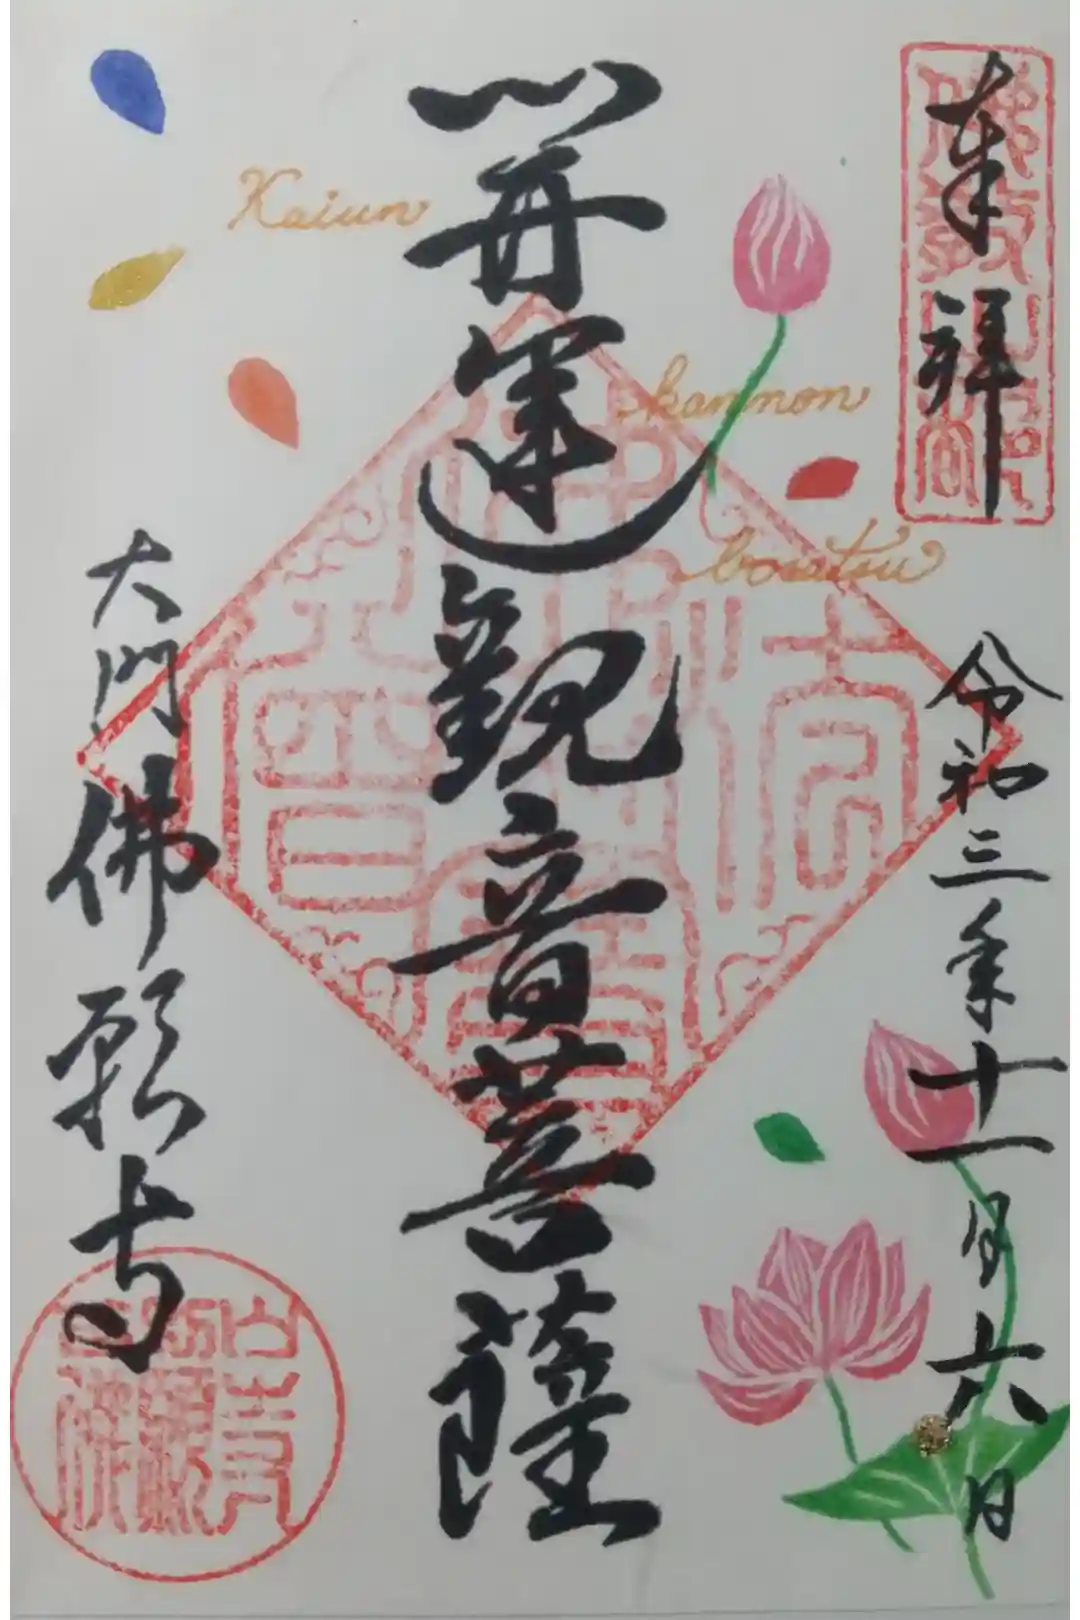 奉拝
令和三年十一月六日
開運観音菩薩
Kaiun
kannon
bosatsu
大門佛願寺